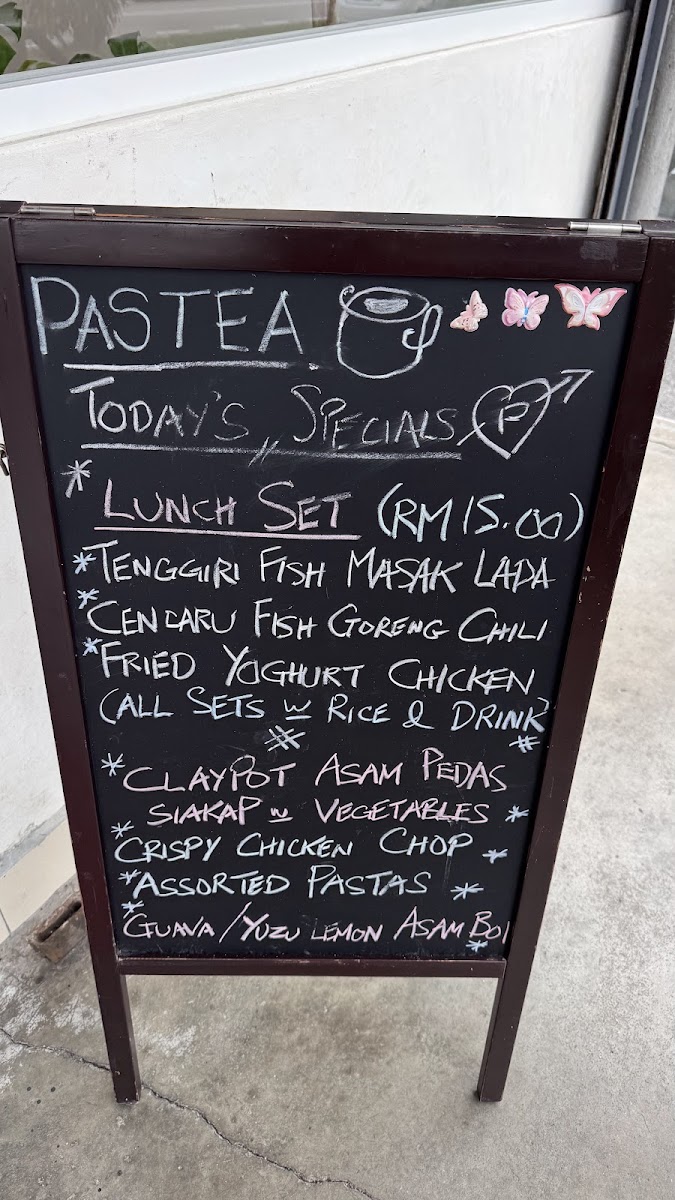 PASTEA.
TODAY'S SPECIALS P
* LUNCH SET (RM15.00)
* TENGGIRI FISH MASAK LADA
* CENCARU FISH GORENG CHILI
* FRIED YOGHURT CHICKEN
(ALL SETS w RICE & DRINK)
* CLAYPOT ASAM PEDAS
SIAKAP w VEGETABLES *
* CRISPY CHICKEN CHOP *
* ASSORTED PASTAS *
* GUAVA/YUZU LEMON ASAM BOI *